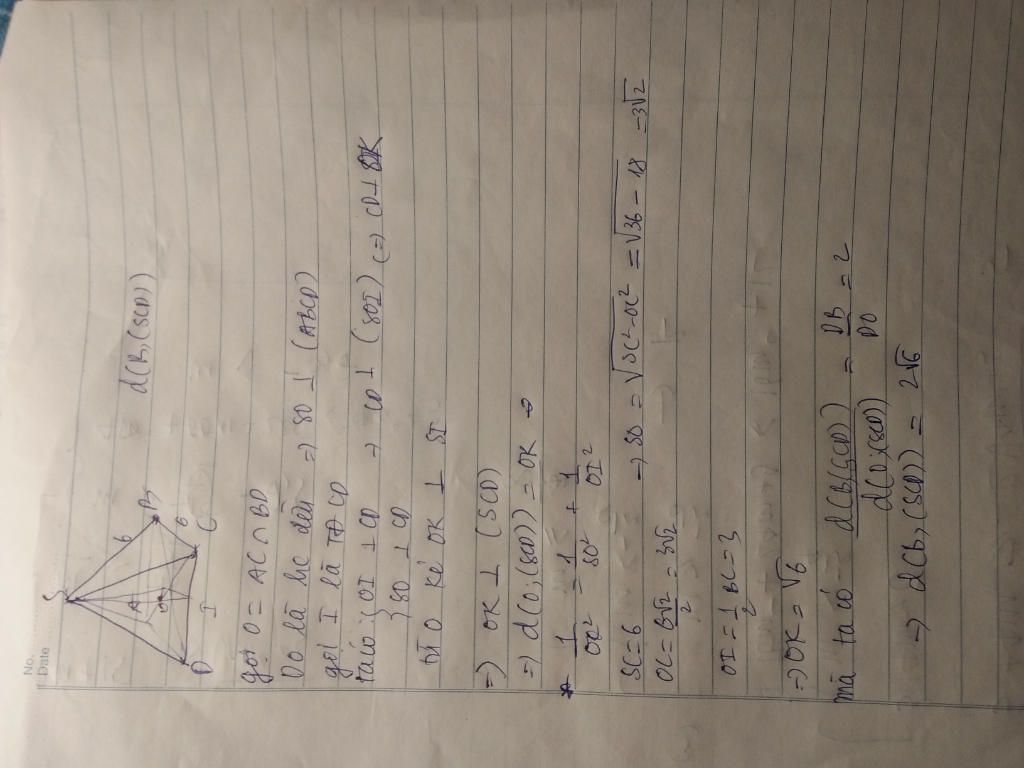 No.
Date
S
6
B
A
O
6
D
I
C
d(B,(SCD))
gọi O = AC ∩ BD
Do là h/c đều => SO ⊥ (ABCD)
gọi I là TĐ CD
ta có { OI ⊥ CD → CD ⊥ (SOI) (=> CD ⊥ OK
} SO ⊥ CD
từ O kẻ OK ⊥ SI
=> OK ⊥ (SCD)
=> d(O,(SCD)) = OK
* 1/OK² = 1/SO² + 1/OI²
SC = 6 → SO = √SC² - OC² = √36 - 18 = 3√2
OC = 6√2/2 = 3√2
OI = 1/2 BC = 3
=> OK = √6
mà ta có d(B,(SCD))/d(O,(SCD)) = DB/DO = 2
=> d(B,(SCD)) = 2√6